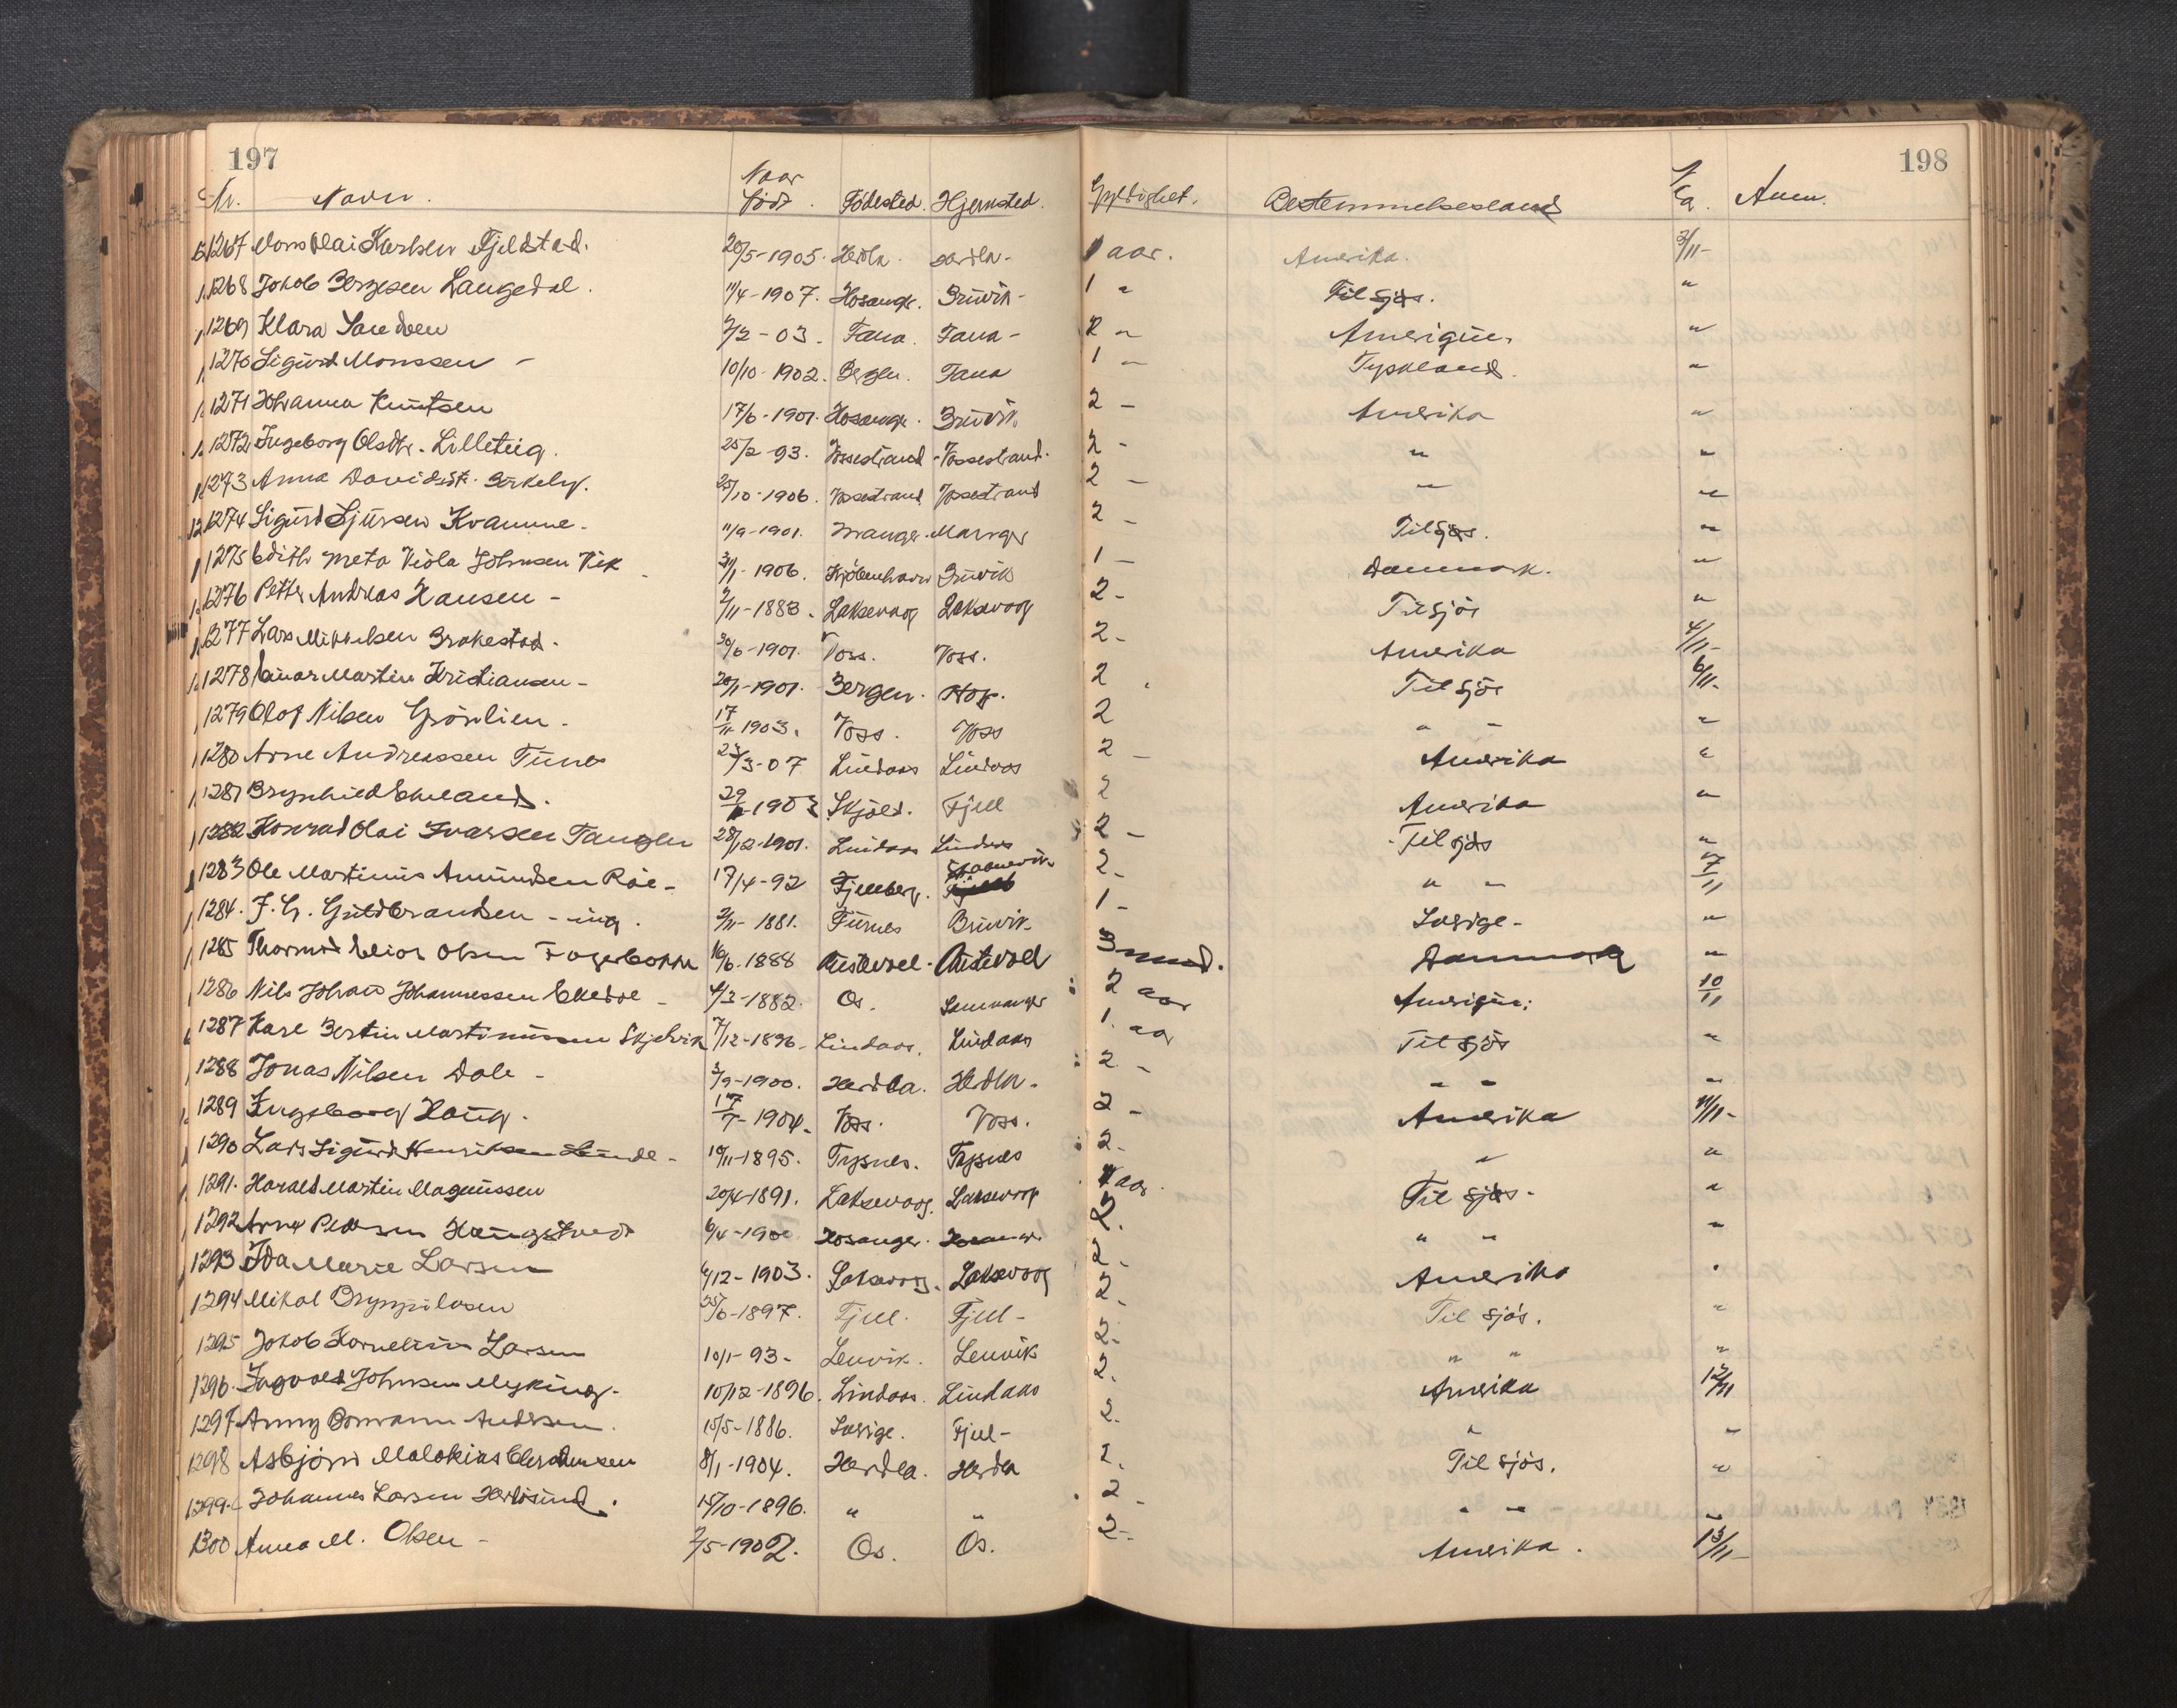 197
198
Nr. Navn. Naar født. Fødested. Hjemsted. Gyldighet. Bestemmelsesland Anm.
1267 Mons Olai Karlsen Fjeldstad. 20/5-1905. Herdla. Herdla- 1 aar. Amerika. 3/11-
1268 Jakob Børgesen Langedal. 11/4-1907. Hosangr. Bruvik- 1 " Til sjøs. "
1269 Klara Sandven 2/2-03. Fana. Fana- 2 " Amerique. "
1270 Sigurd Monssen - 10/10-1902. Bergen. Fana 1 - Tyskland. "
1271 Johanna Knutsen 17/6-1901. Hosangr. Bruvik 2 - Amerika "
1272 Ingeborg Olsdtr. Lilleteig. 25/2-93. Vossestrand - Vossestrand. 2 - " "
1273 Anna Davidsdt. Birkely. 25/10-1906. Vossestrand Vossestrand 2 - " "
1274 Sigurd Sjursen Kvamme- 11/9-1901. Mangr. Mangr 2 - Til sjøs. "
1275 Edith Meta Viola Johnsen Vik 31/1-1906. Kjöbenhavn Bruvik 1 - Danmark. "
1276 Petter Andreas Hansen - 2/11-1883. Laksevaag Laksevaag 2- Til sjös "
1277 Lars Mikkelsen Brakestad. 30/6-1901. Voss. Voss. 2- Amerika 4/11-
1278 Einar Martin Kristiansen- 20/1-1901. Bergen. Hop. 2 Til sjös 6/11-
1279 Olaf Nilsen Grönlien- 17/11-1903. Voss. Voss 2 " " "
1280 Arne Andreassen Tunes 23/3-07 Lindaas Lindaas 2 - Amerika "
1281 Brynhild Ekeland. 1903 Skjold. Fjell 2 Amerika "
1282 Konrad Olai Ivarsen Tangen 28/12-1901. Lindaas Lindaas 2 - Til sjøs "
1283 Ole Martinus Amundsen Röe- 17/4-92 Fjelberg. Skaanevik 2- " " 7/11
1284. F. G. Guldbrandsen - ing. 2/11-1881. Furnes Bruvik- 1- Sverige- "
1285 Thormod Elias Olsen Fagerbakke 16/6-1888 Austevoll. Austevoll 3 mnd. Danmark "
1286 Nils Johan Johannessen Ekedal- 4/3-1882. Os. Samnangr 2 aar Amerique: 10/11
1287 Karl Bertin Martinussen Skjelvik 7/12-1896- Lindaas. Lindaas 1. aar Til sjøs "
1288 Jonas Nilsen Dale- 3/9-1900. Herdla. Herdla. 2 - " " "
1289 Ingeborg Haug. 17/7-1904. Voss. Voss. 2 - Amerika 11/11-
1290 Lars Sigurd Henriksen Lunde- 10/11-1895. Tysnes. Tysnes 2- " "
1291. Harald Martin Magnussen 20/4-1891. Laksevaag. Laksevaag 1 aar. Til sjøs. "
1292 Arne Pedersen Haugstvedt 6/4-1900 Hosanger. Hosangr. 2. " " "
1293 Ida Marie Larsen 4/12-1903. Laksevaag. Laksevaag 2- Amerika "
1294 Mikal Brynjulvsen 25/6-1897. Fjell. Fjell- 2- Til sjös. "
1295 Jakob Kornelius Larsen 10/1-93- Lenvik. Lenvik 2- " " "
1296. Ingvald Johnsen Myking- 10/12-1896. Lindaas. Lindaas 2- Amerika 12/11
1297 Anny Andersen. 15/5-1886. Sverige. Fjell- 2- " "
1298 Asbjörn Malakias 8/1-1904. Herdla. Herdla 2. Til sjøs. "
1299. Johannes Larsen Herdlesund. 15/10-1896. " " 2 - " " "
1300 Anna M. Olsen- 2/5-1902. Os. Os. 2- Amerika. 13/11-